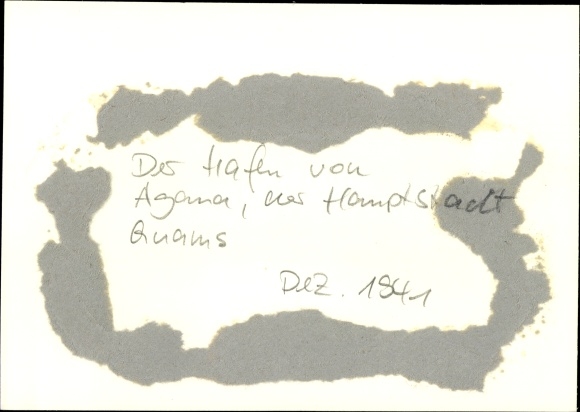 Der Hafen von
Agama, der Hauptstadt
Guams
Dez. 1941